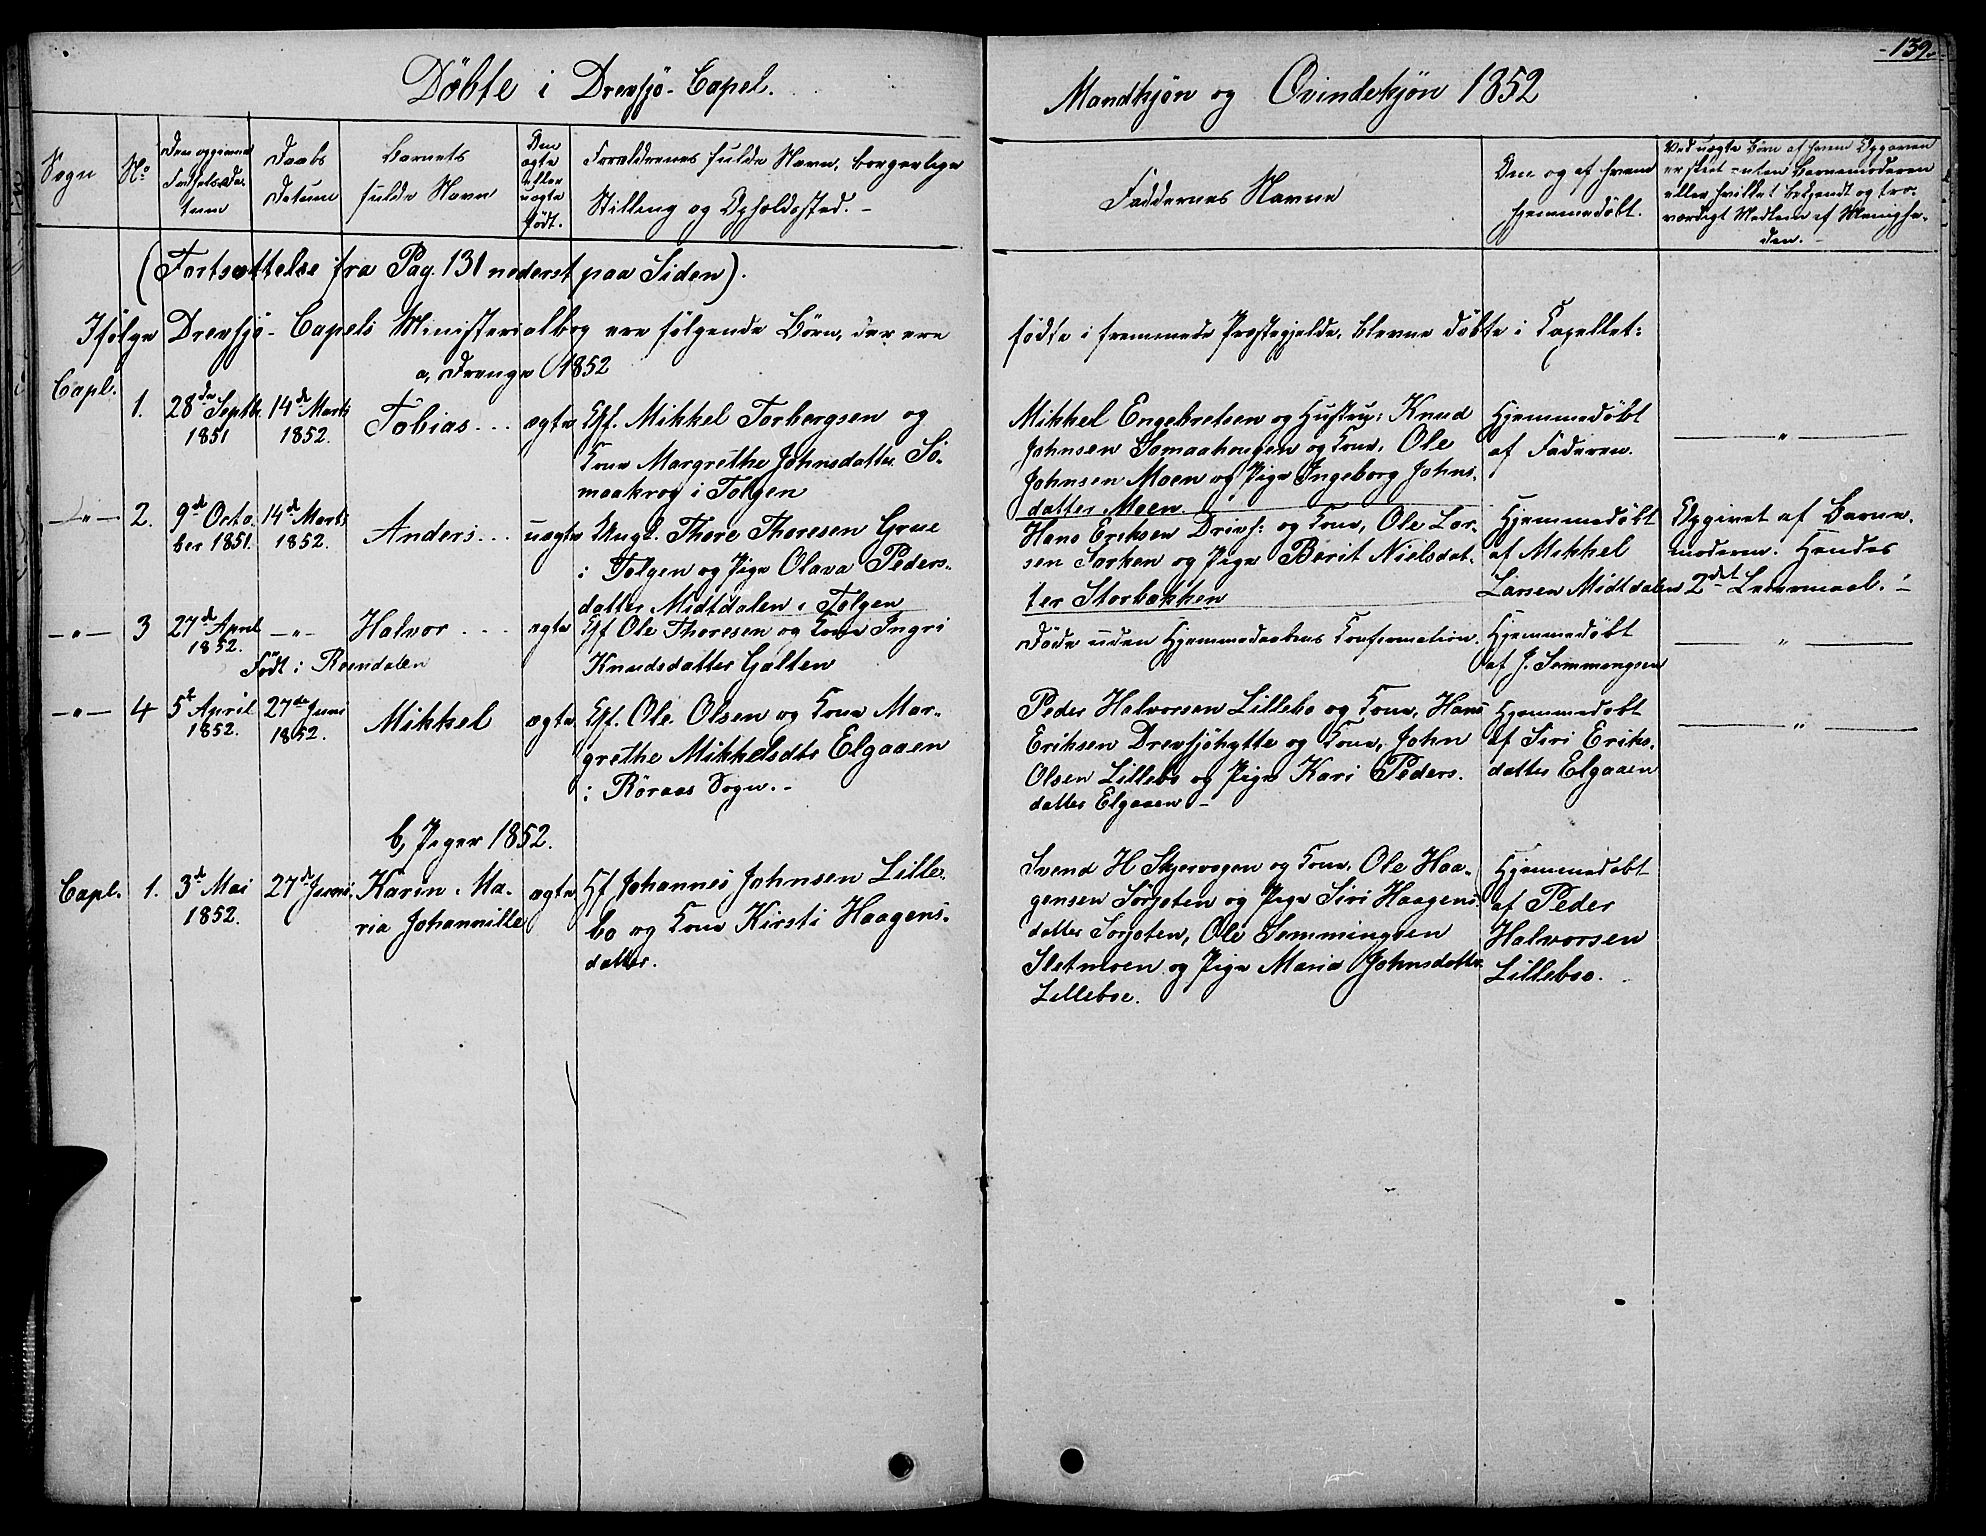 -139-
Döbte i Drevsjö-Capel.
Mandkjön og Qvindekjön 1852
Sogn
No
Den opgivne Fødselsdatum
Daabs Datum
Barnets fulde Navn
Den ægte eller uægte født.
Forældrenes fulde Navn, borgerlige
Stilling og Opholdssted.-
Faddernes Navne
Om og af hvem
hjemmedöbt.
Ved uægte Børn af hvem Opgaven
er skeet - uten Barnemoderen
eller hvilket bekjendt og tro-
værdigt Medlem af Menighe-
den.-
(Fortsættelse fra Pag. 131 nederst paa Siden).
Ifølge Drevsjö-Capels Ministerialbog ere følgende Börn, der ere
födte i fremmede Præstegjelde, blevne döbte i Capellet:
a, Drenge 1852
Capl. 1. 28de Septbr 1851 14de Marts 1852. Tobias ægte Gf. Mikkel Torbergsen og
Kone Margrethe Johnsdatter So-
maakrog i Tolgen
Mikkel Engebretsen og Hustru; Knud
Johnsen Somaahougen og Kone, Ole
Johnsen Moen og Pige Ingeborg Johns-
datter Moen.
Hjemmedöbt
af Faderen.
-"-
-"- 2. 9de Octo-
ber 1851. 14de Marts 1852. Anders uægte Ungk. Thore Thoresen Grue
i Tolgen og Pige Olava Peders-
datter Midtdalen i Tolgen
Hans Eriksen Drevsj: og Kone, Ole Lar-
sen Sorken og Pige Berit Nielsdat-
ter Storbakken
Hjemmedöbt
af Mikkel
Larsen Midtdalen
Opgivet af Barne-
moderen. Hendes
2det Leiermaal.-
-"- 3 27de April 1852. -"- Halvor ægte Gf. Ole Thoresen og Kone Ingri
Födt i Roendalen
Knudsdatter Galten
Döde uden Hjemmedaabens Confirmation.
Hjemmedöbt
af J. Semmengsen
-"-
-"- 4 5te April 1852. 27de Juni 1852. Mikkel ægte Gf. Ole Olsen og Kone Mar-
grethe Mikkelsdtr Elgaaen
i Röraas Sogn.-
Peder Halvorsen Lillebo og Kone, Hans
Eriksen Drevsjöhytte og Kone, John
Olsen Lillebo og Pige Kari Peders-
datter Elgaaen-
Hjemmedöbt
af Siri Eriks-
datter Elgaaen
-"-
b, Piger 1852.
Capl. 1. 3de Mai 1852. 27de Juni Karen Ma-
ria Johannille ægte Gf Johannes Johnsen Lille-
bo og Kone Kirsti Haagens-
datter.
Svend H Skjervagen og Kone, Ole Haa-
gensen Sorjoten og Pige Siri Haagens
datter Sorjoten, Ole Semmingsen
Sletmoen og Pige Maria Johnsdatter
Lilleboe.
Hjemmedöbt
af Peder
Halvorsen
Lilleboe.